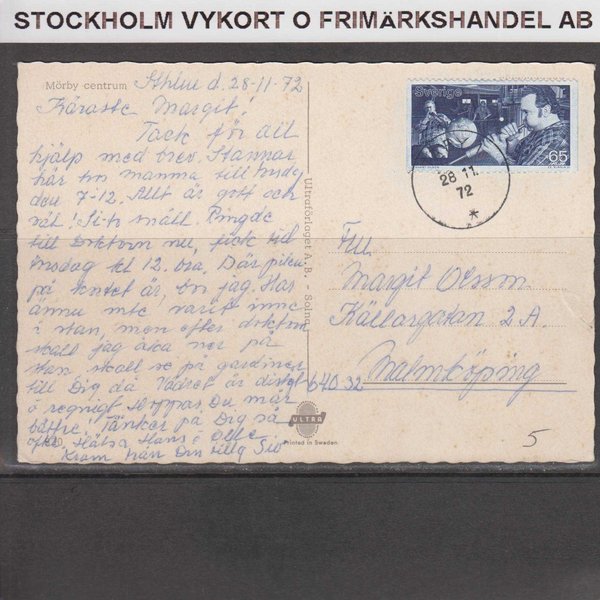 STOCKHOLM VYKORT O FRIMÄRKSHANDEL AB
Mörby centrum
Sthlm d. 28-11-72
Käraste Margit!
Tack för all
hjälp med brev. Stannar
här hos mamma till
den 7-12. Allt är gott och
väl! Ringde
till Doktorn nu, fick tid
kl 12. Där
på är, jag. Har
ännu inte varit inne
i stan, men efter doktorn
skall jag åka ner på
stan skall se på gardiner
till Dig då Vädret är
o regnigt Hoppas Du mår
bättre! Tänker på Dig så
ofta. Hälsa Hans o
Kram från Din
Ultraförlaget A.B. - Solna
Sverige
65
28 11
72
Till
Margit Olsson
Källargatan 2 A.
640 32 Malmköping
ULTRA
Printed in Sweden
5